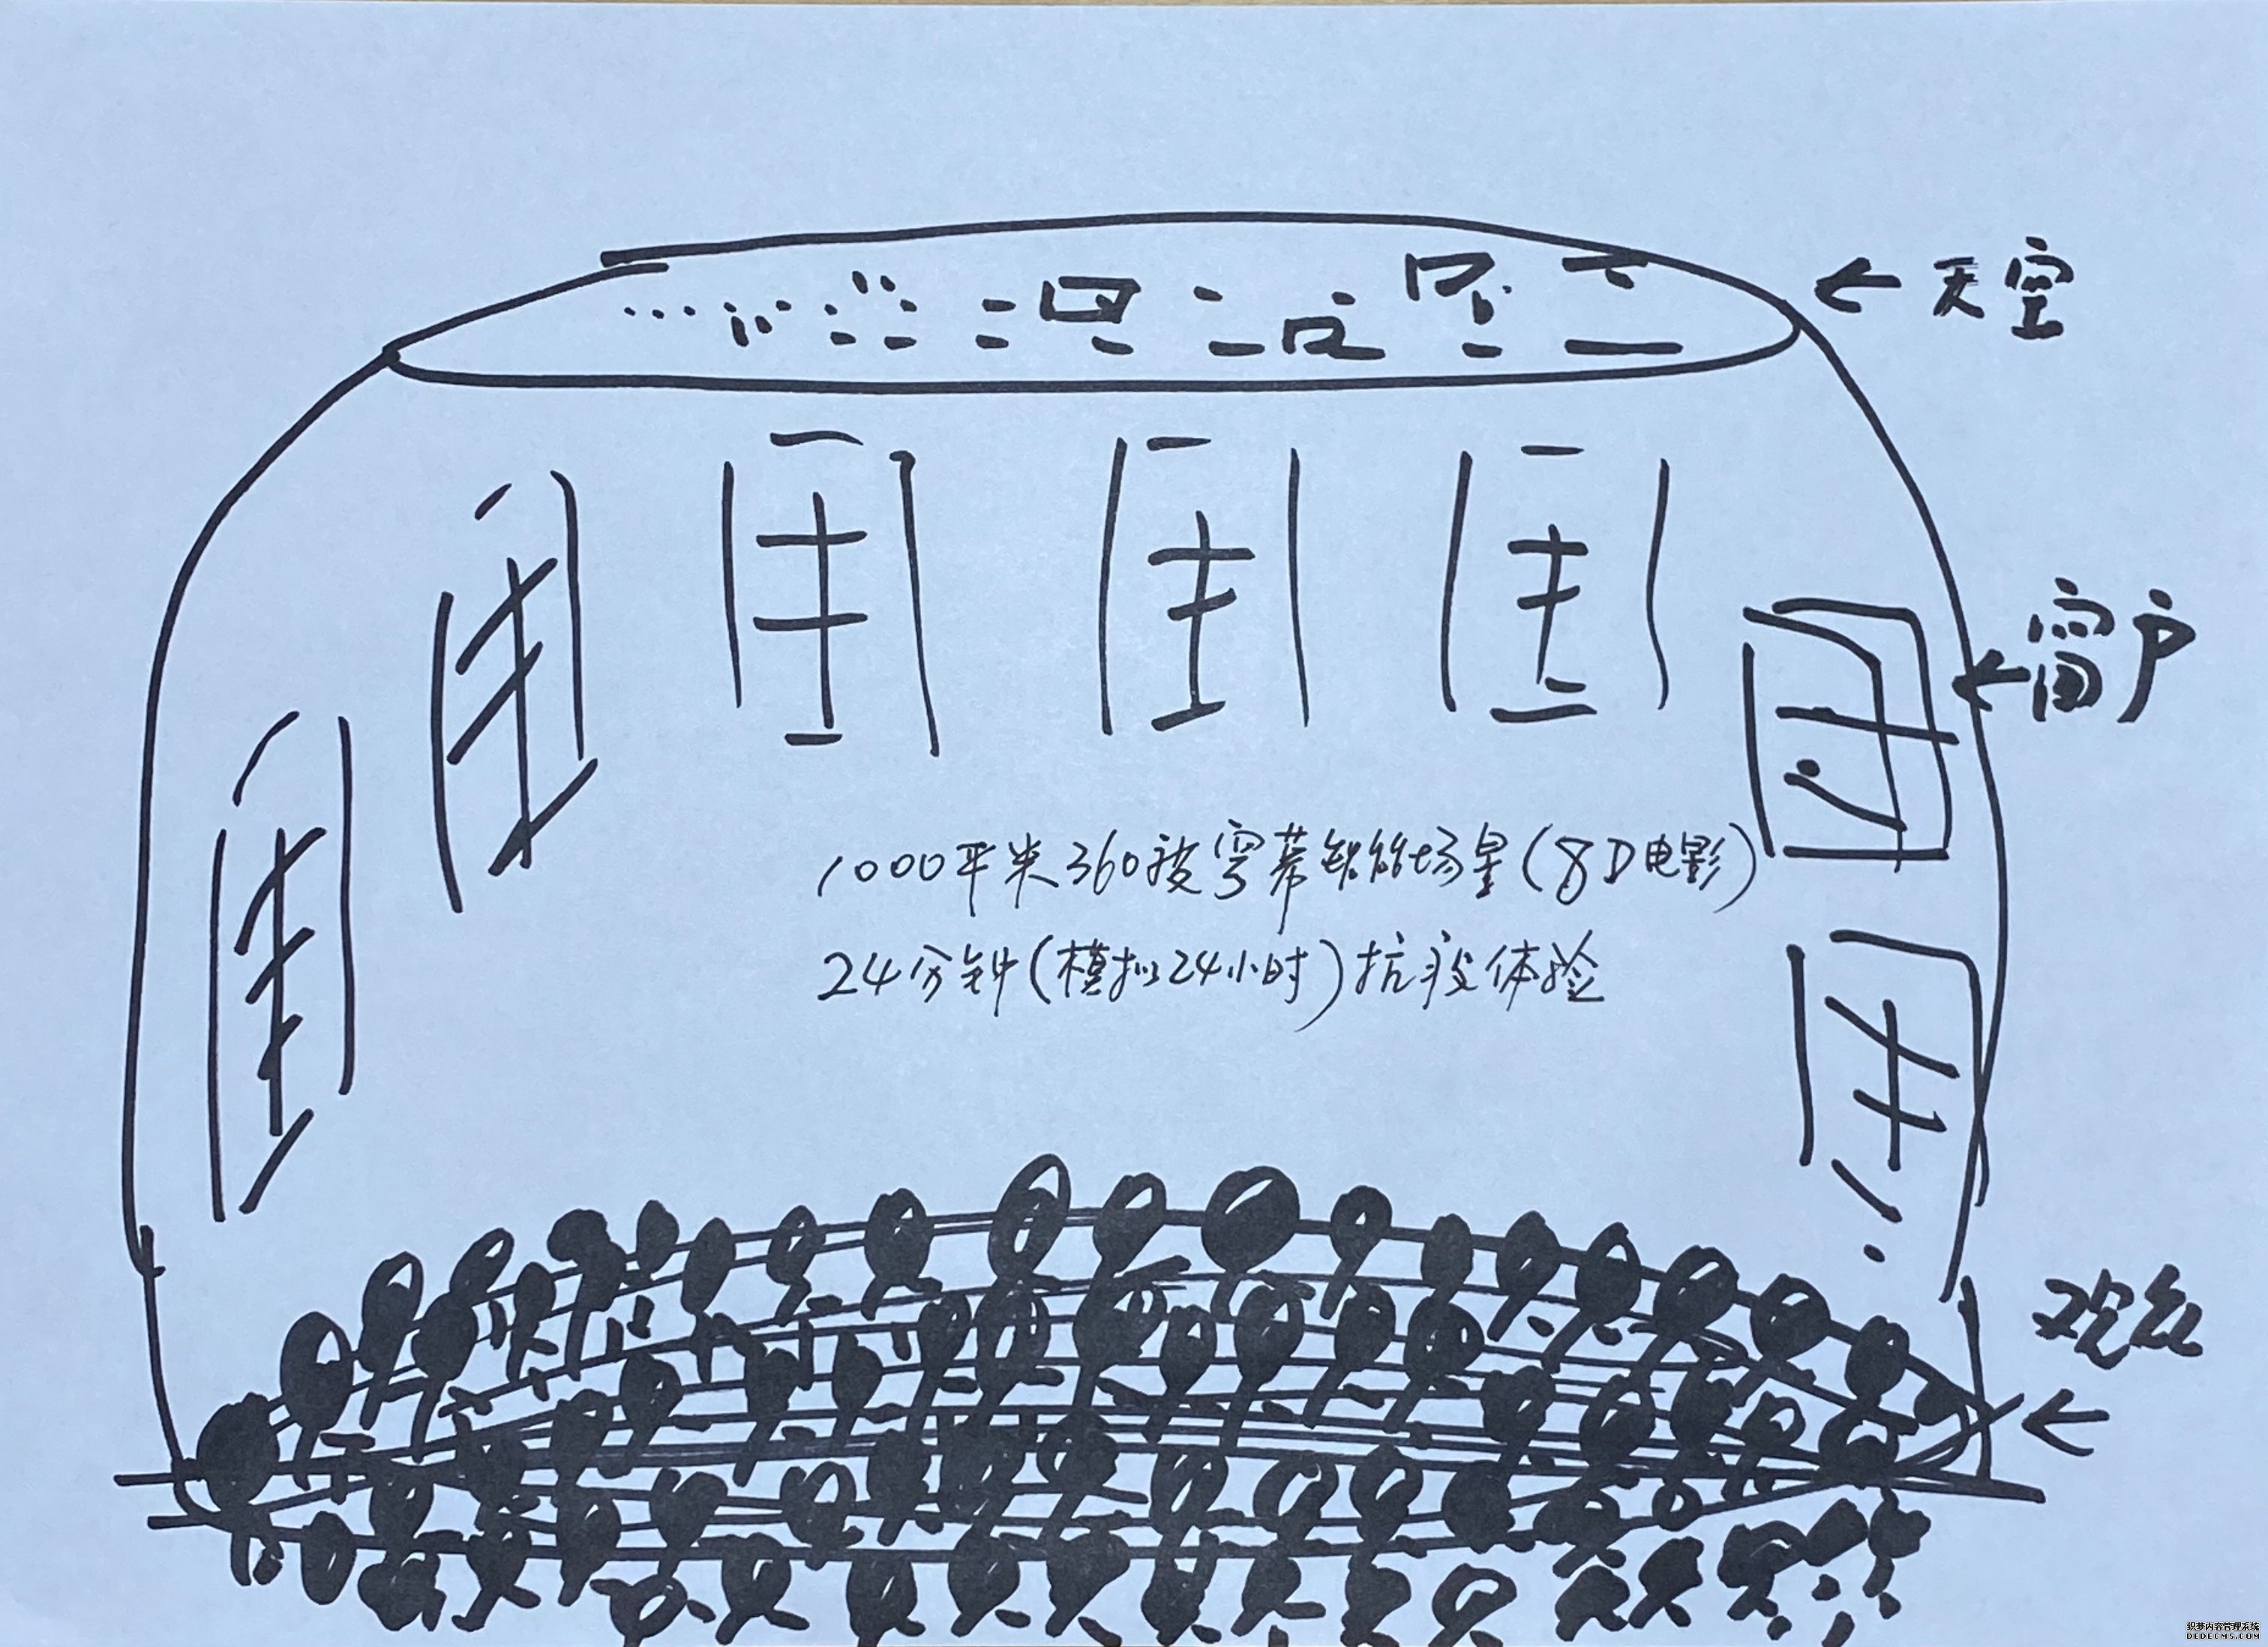 天空
窗户
1000平米360度穹幕 场景(8D电影)
24分钟(模拟24小时)抗疫体验
观众
织梦内容管理系统
DEDECMS.COM